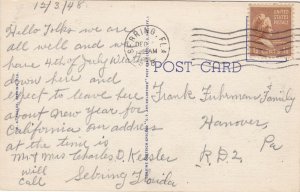 12/3/48.
Hello Folks we are
all well and we
have 4th of July weather
down here and
expect to leave here
about New year for
California our address
at the time is
Mr & Mrs Charles D. Kessler
will Sebring Florida
call
SEBRING, FLA.
DEC
AM
UNITED STATES
POSTAGE
POST CARD
Frank Fuhrman & Family
Hanover,
Pa
R.D.2